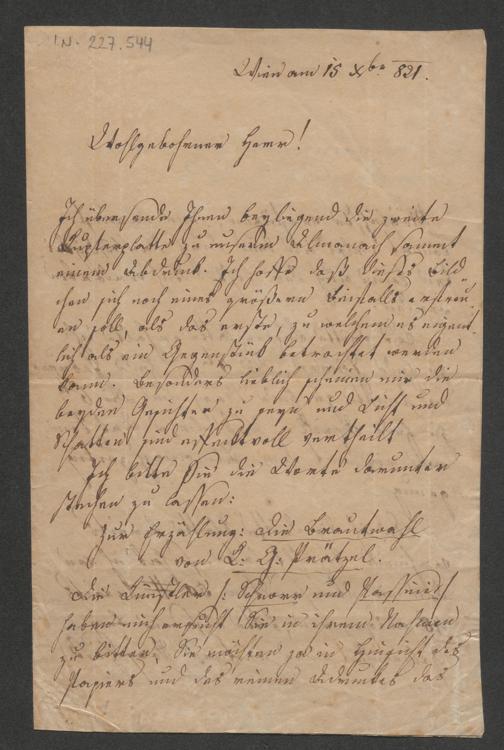 IN. 227.544
Wien am 15 Xbr 821.
Wohlgebohrner Herr!
Ich übersende Ihnen beyliegend die zweite
Kupferplatte zu unserm Almanach sammt
einem Abdruck. Ich hoffe daß dieses Bild
chen sich noch eines größern Beyfalls erfreu
en soll, als das erste, zu welchem es eigent
lich als ein Gegenstück betrachtet werden
kann. Besonders lieblich scheinen mir die
beyden Gesichter zu seyn und Licht und
Schatten sind effectvoll vertheilt
Ich bitte Sie die Worte darunter
stechen zu lassen:
Zur Erzählung: die Brautwahl
von K: G: Prätzel.
Die Künstler /: Schnorr und
haben mich ersucht Sie in ihrem Nahmen
zu bitten, Sie möchten ja in Hinsicht des
Papiers und des reinen Abdruckes das